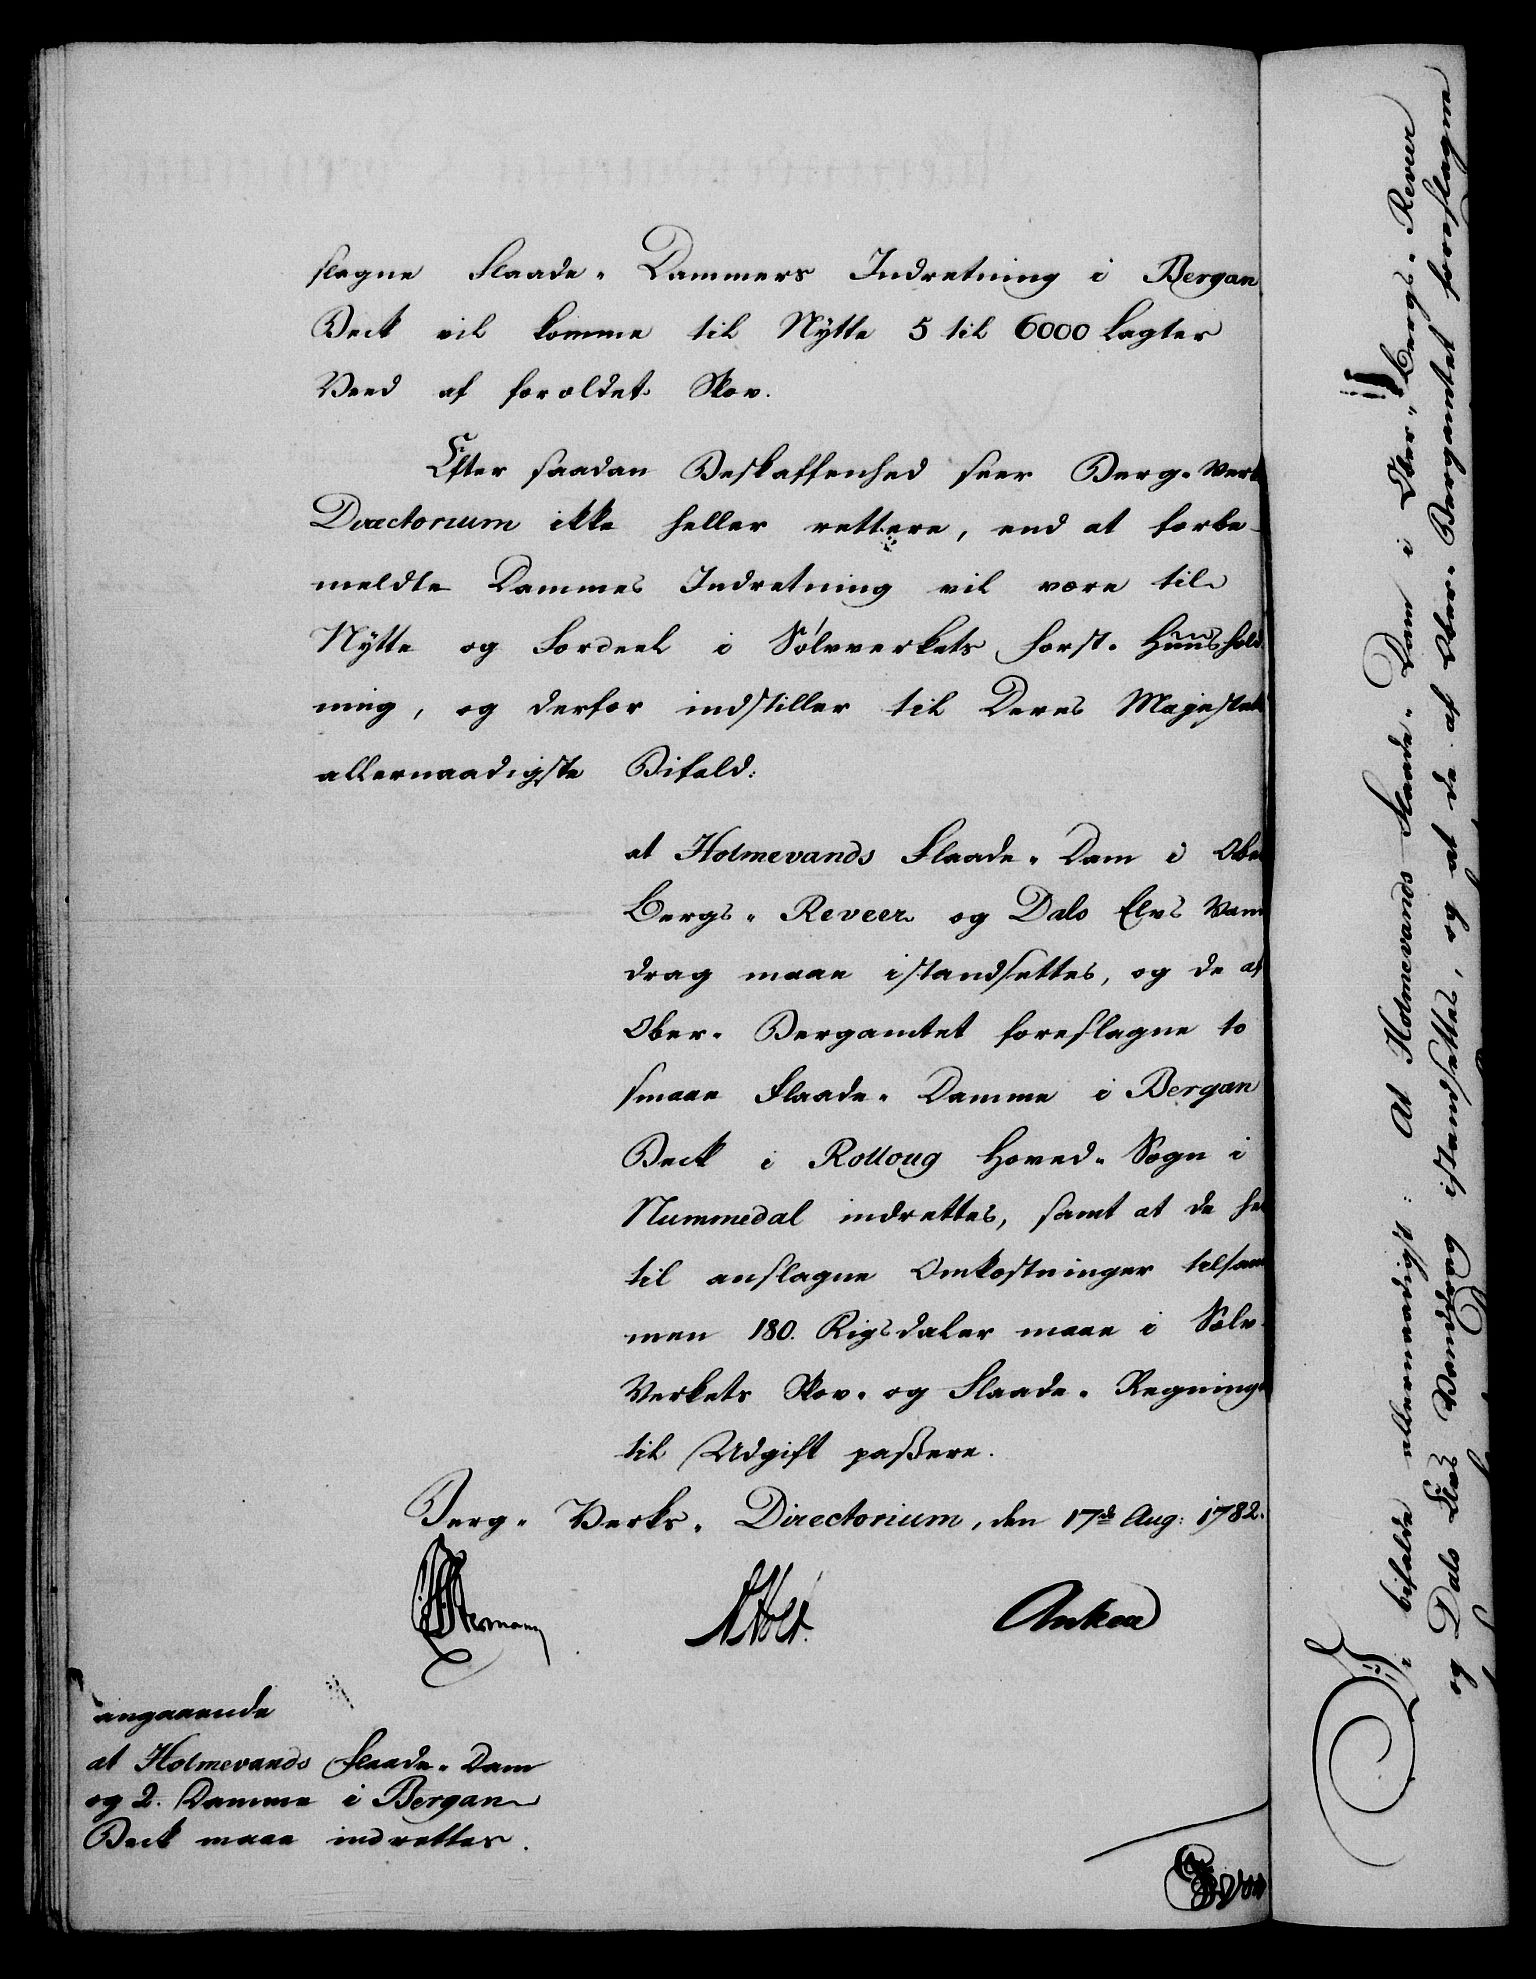 slagne Flaade-Dammers Indretning i Bergan
Beck vil komme til Nytte 5 til 6000 Lagter
Veed af forældet Skov.
Efter saadan Beskaffenhed seer Berg-Verks
Directorium ikke heller rettere, end at forbe-
meldte Dammes Indretning vil være til
Nytte og Fordeel i Sølvverkets Forst-Huushold-
ning, og derfor indstiller til Deres Majestæts
allernaadigste Bifald:
at Holmevands Flaade-Dam i Ober
Bergs-Reveer og Dals Elvs Vand
drag maae istandsettes, og de af
Ober-Bergamtet foreslagne to
smaae Flaade-Damme i Bergan
Beck i Rolloug Hoved-Sogn i
Nummedal indrettes, samt at de her
til anslagne Omkostninger tilsam
men 180. Rigsdaler maae i Sølv-
Verkets Skov- og Flaade-Regning
til Udgift passere.
Berg-Verks-Directorium, den 17de Aug: 1782.
Holt. Anker
angaaende
at Holmevands Flaade-Dam
og 2. Damme i Bergan
Beck maae indrettes.
Vi bifalde allernaadigst: At Holmevands Flaade-Dam i Ober-Bergs-Reveer
og Dals Elvs Vanddrag istandsettes, og at de af Ober-Bergamtet foreslagne